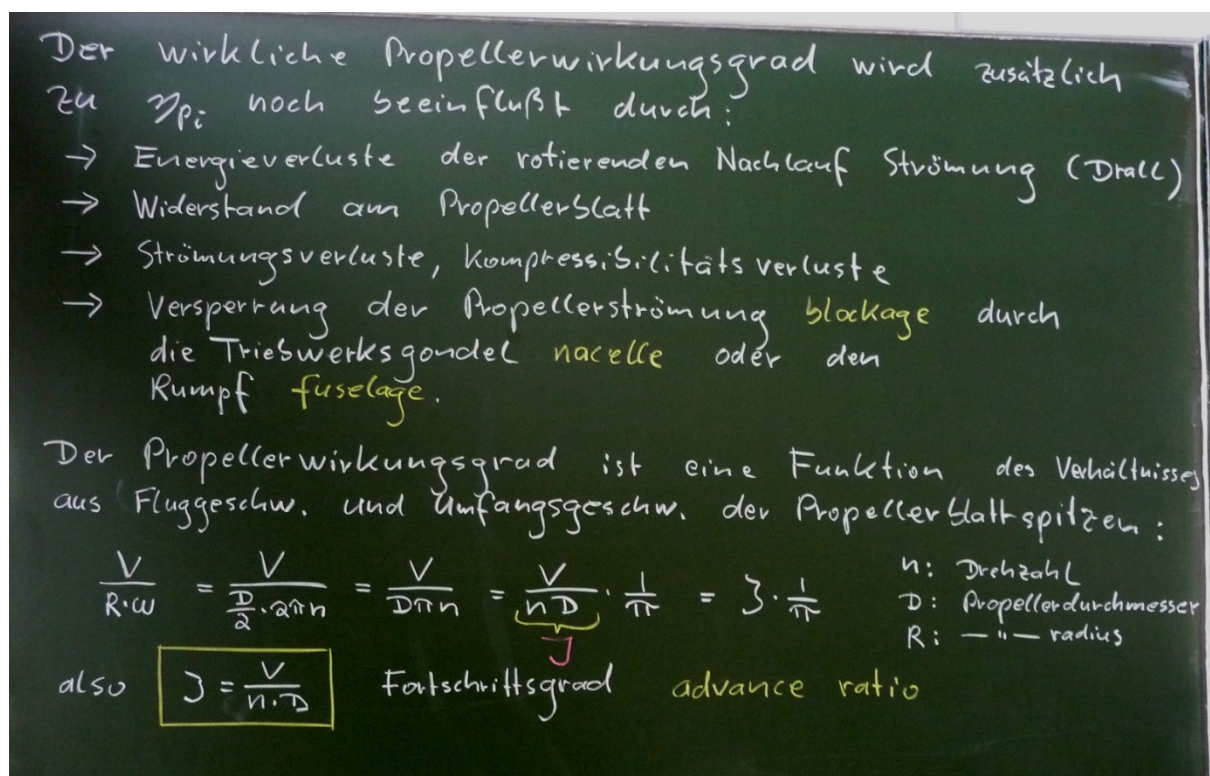 Der wirkliche Propellerwirkungsgrad wird zusätzlich
zu ηPi noch beeinflußt durch:
→ Energieverluste der rotierenden Nachlauf Strömung (Drall)
→ Widerstand am Propellerblatt
→ Strömungsverluste, Kompressibilitätsverluste
→ Versperrung der Propellerströmung blockage durch
die Triebwerksgondel nacelle oder den
Rumpf fuselage.
Der Propellerwirkungsgrad ist eine Funktion des Verhältnisses
aus Fluggeschw. und Umfangsgeschw. der Propellerblattspitzen:
V/(R·ω) = V/(D/2 · 2πn) = V/(Dπn) = V/(nD) · 1/π = J · 1/π
J
n: Drehzahl
D: Propellerdurchmesser
R: — " — radius
also J = V/(n·D) Fortschrittsgrad advance ratio